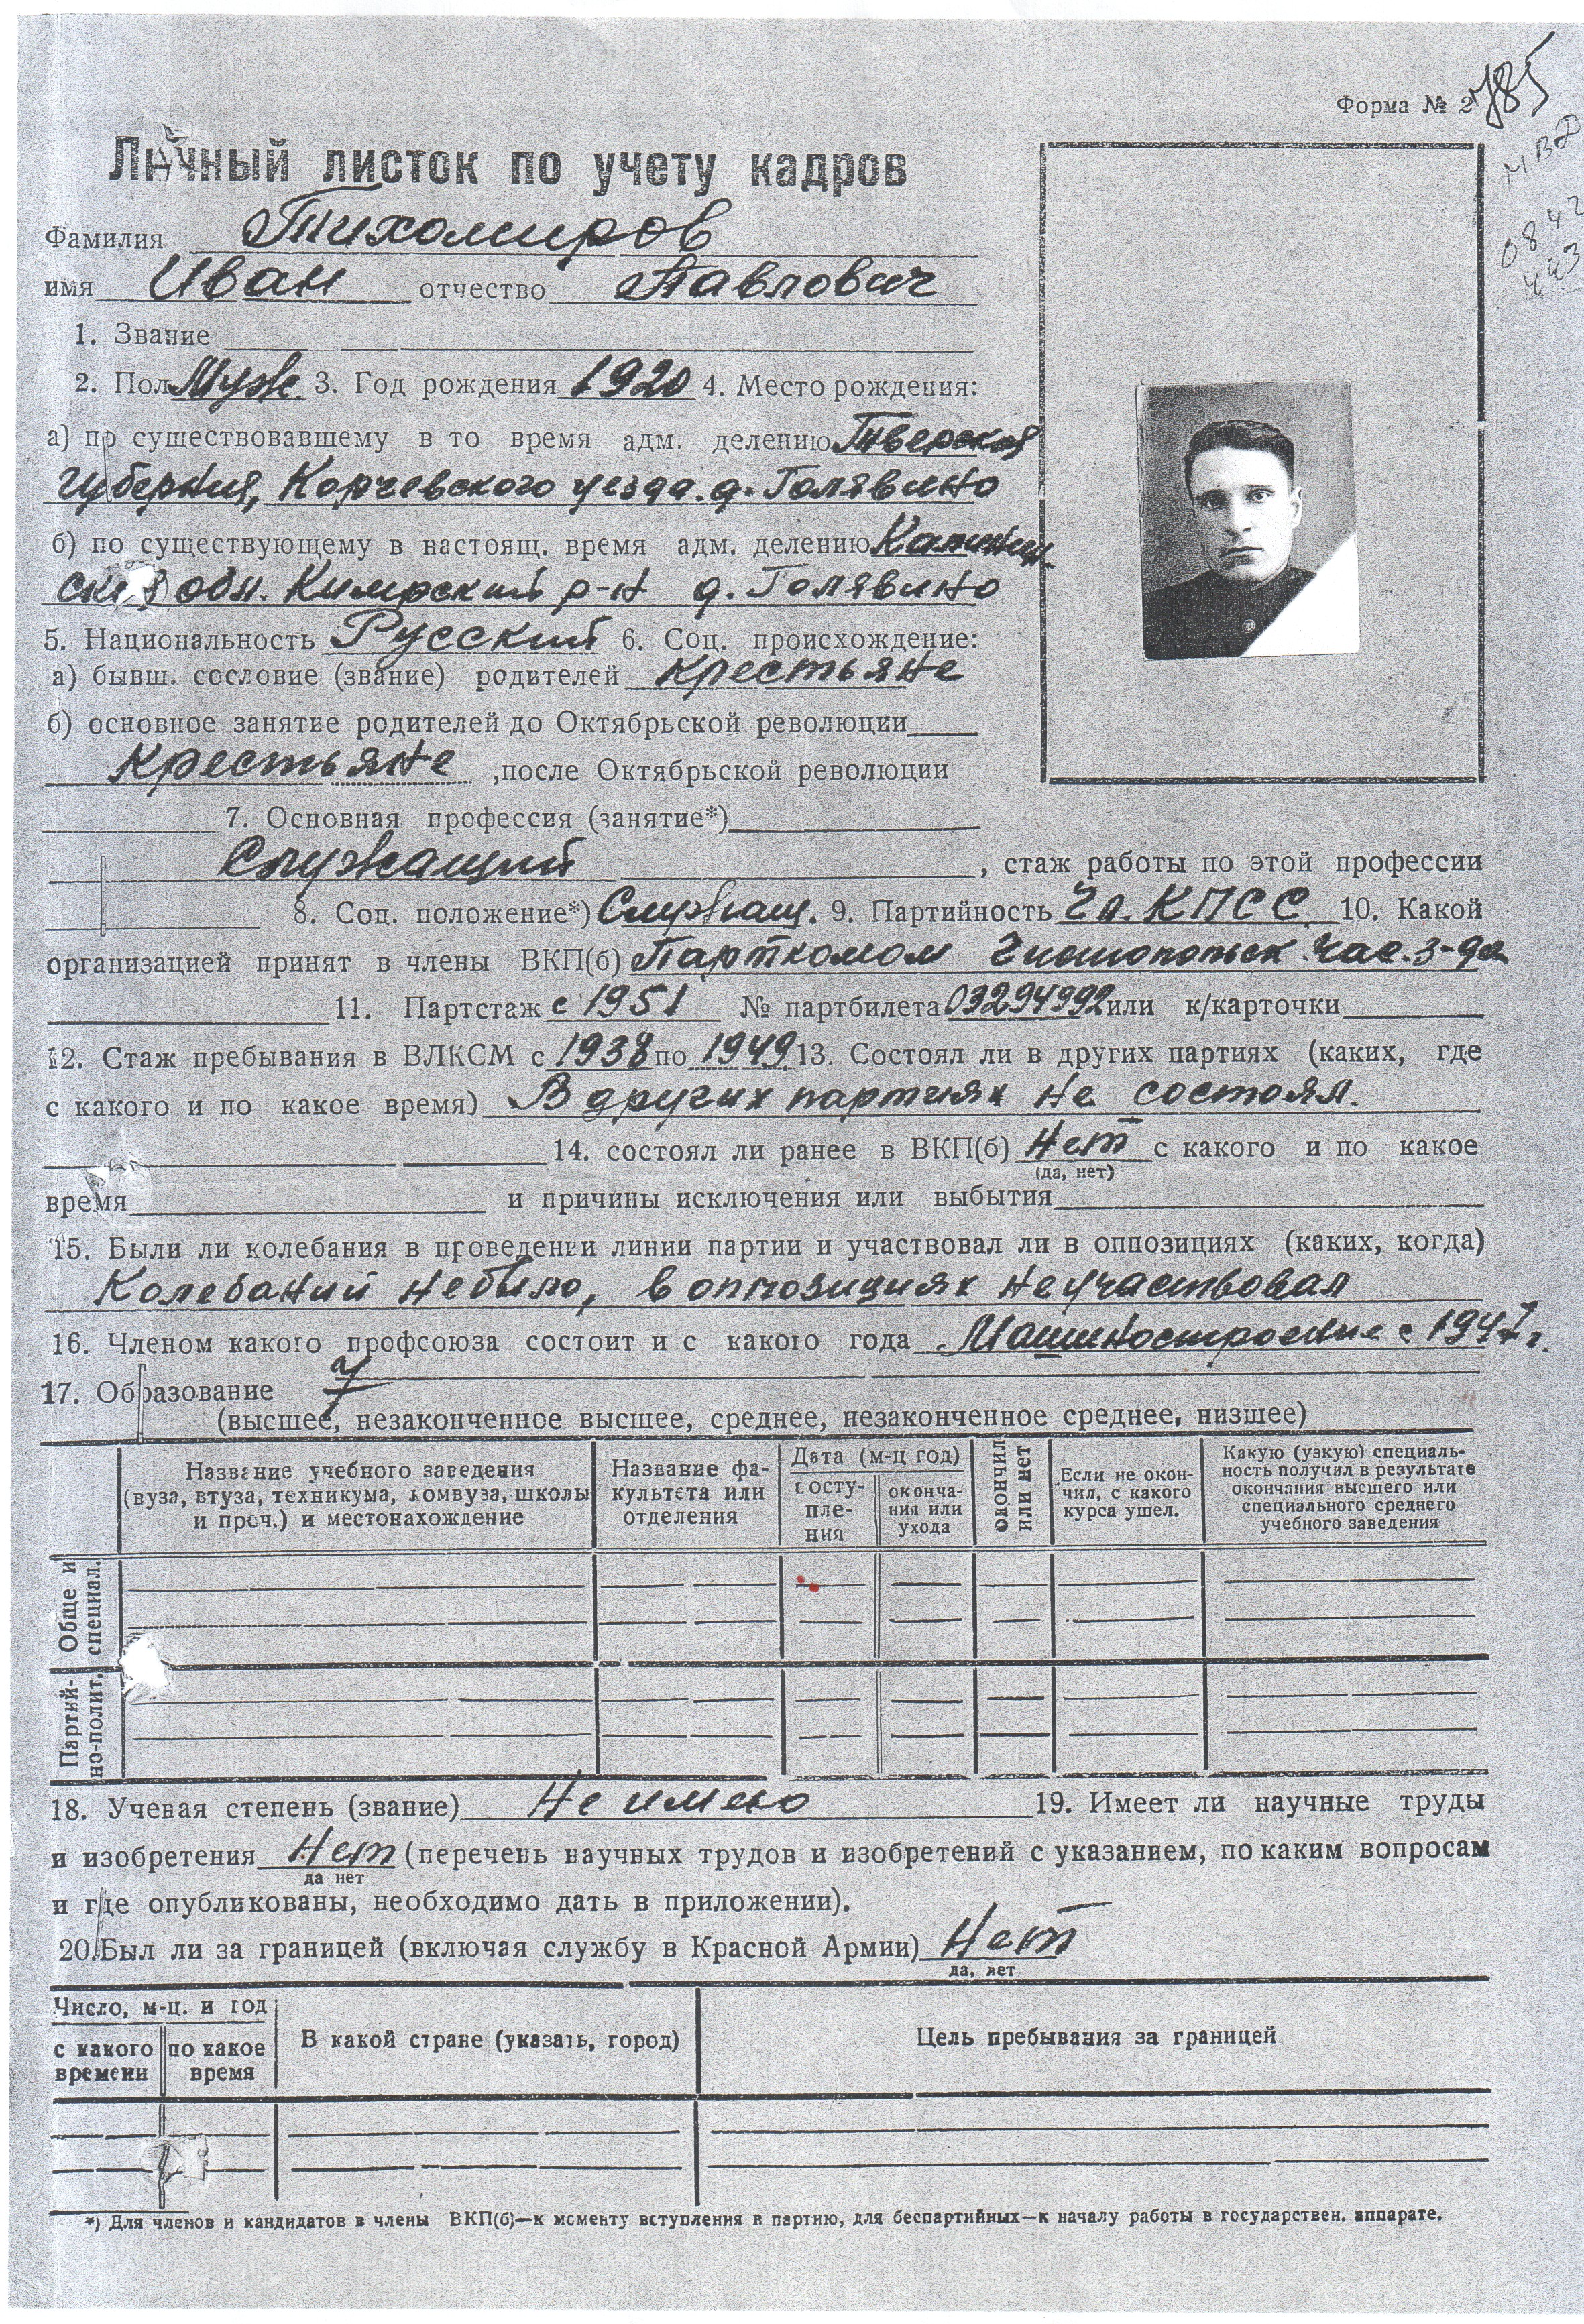 Форма № 2
785
МВД
0842
443
Личный листок по учету кадров
Фамилия Тихомиров
имя Иван отчество Павлович
1. Звание
2. Пол Муж. 3. Год рождения 1920 4. Место рождения:
а) по существовавшему в то время адм. делению Тверская
губерния, Корчевского уезда. д. Голявино
б) по существующему в настоящ. время адм. делению Калинин-
ская обл. Кимрский р-н д. Голявино
5. Национальность Русский 6. Соц. происхождение:
а) бывш. сословие (звание) родителей крестьяне
б) основное занятие родителей до Октябрьской революции
крестьяне ,после Октябрьской революции
7. Основная профессия (занятие*)
Служащий , стаж работы по этой профессии
8. Соц. положение*) Служащ. 9. Партийность Чл. КПСС 10. Какой
организацией принят в члены ВКП(б) Парткомом Чистопольск. час. з-да
11. Партстаж с 1951 № партбилета 03294992 или к/карточки
12. Стаж пребывания в ВЛКСМ с 1938 по 1949. 13. Состоял ли в других партиях (каких, где
с какого и по какое время) В других партиях не состоял.
14. состоял ли ранее в ВКП(б) Нет с какого и по какое
(да, нет)
время и причины исключения или выбытия
15. Были ли колебания в проведении линии партии и участвовал ли в оппозициях (каких, когда)
Колебаний небыло, в оппозициях неучаствовал
16. Членом какого профсоюза состоит и с какого года Машиностроение с 1947 г.
17. Образование 7
(высшее, незаконченное высшее, среднее, незаконченное среднее, низшее)
Название учебного заведения
(вуза, втуза, техникума, комвуза, школы
и проч.) и местонахождение
Название фа-
культета или
отделения
Дата (м-ц год)
посту-
пле-
ния
оконча-
ния или
ухода
окончил
или нет
Если не окон-
чил, с какого
курса ушел.
Какую (узкую) специаль-
ность получил в результате
окончания высшего или
специального среднего
учебного заведения
Обще и
специал.
Партий-
но-полит.
18. Ученая степень (звание) Не имею 19. Имеет ли научные труды
и изобретения Нет (перечень научных трудов и изобретений с указанием, по каким вопросам
да нет
и где опубликованы, необходимо дать в приложении).
20. Был ли за границей (включая службу в Красной Армии) Нет
да, нет
Число, м-ц. и год
с какого
времени
по какое
время
В какой стране (указать, город)
Цель пребывания за границей
*) Для членов и кандидатов в члены ВКП(б)—к моменту вступления в партию, для беспартийных—к началу работы в государствен. аппарате.